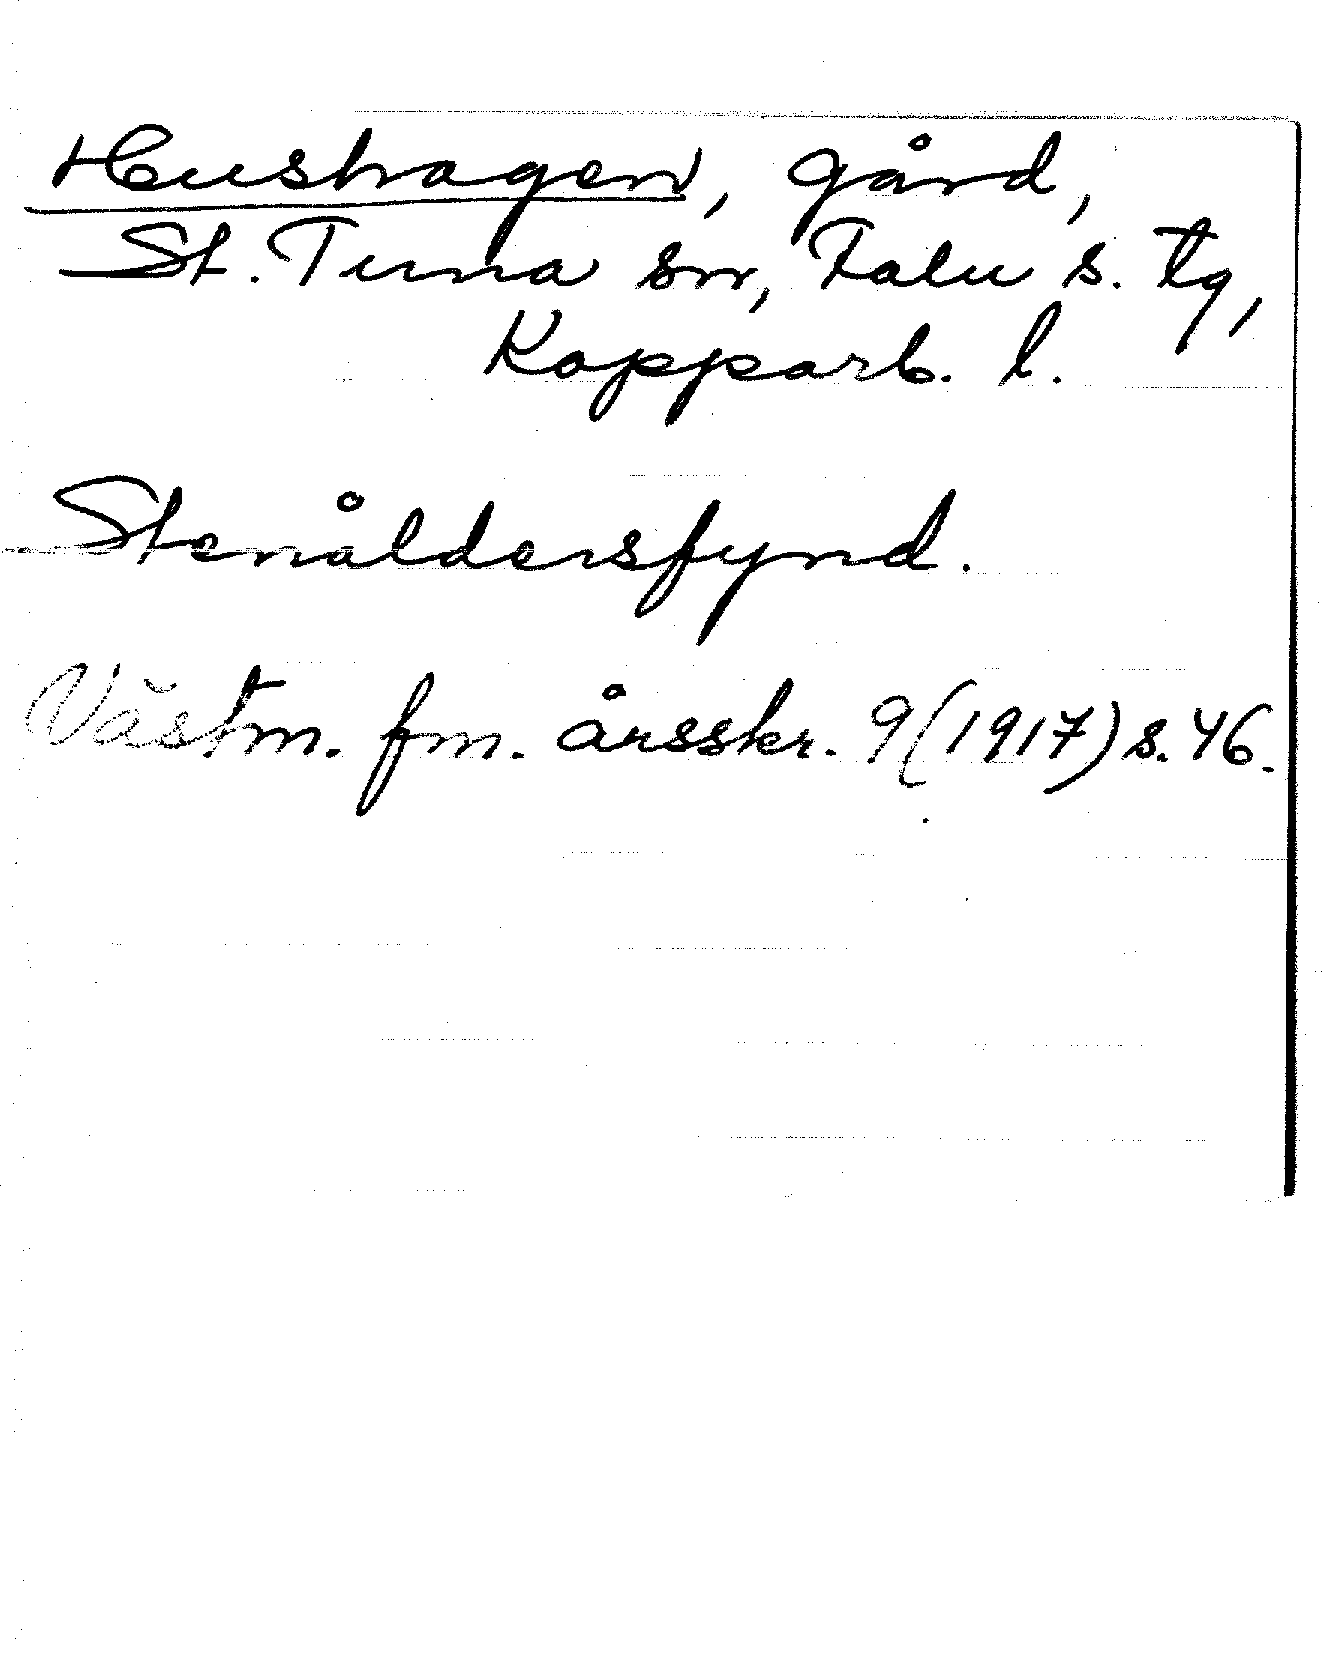 Hushagen, gård,
St. Tuna sn, Falu s. tg,
Kopparb. l.
Stenåldersfynd.
Västm. fm. årsskr. 9 (1917) s. 46.